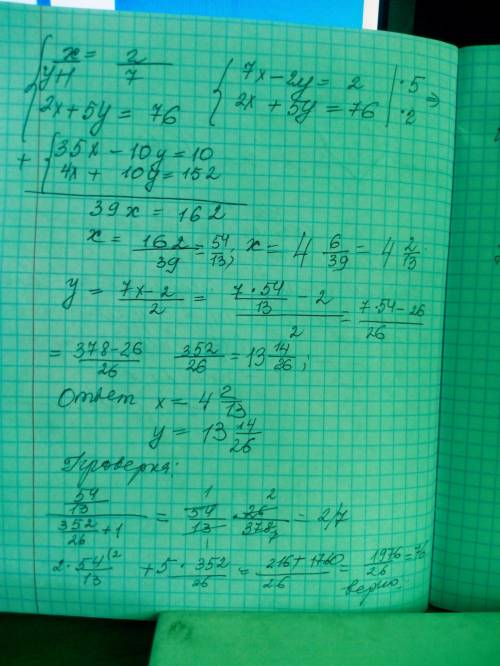 { x/(y+1) = 2/7   { 7x - 2y = 2 | ·5
{ 2x + 5y = 76   { 2x + 5y = 76 | ·2 ⇒
+ { 35x - 10y = 10
{ 4x + 10y = 152
39x = 162
x = 162/39 = 54/13; x = 4 6/39 = 4 2/13
y = (7x - 2)/2 = (7·54/13 - 2)/2 = (7·54 - 26)/26
= (378 - 26)/26   352/26 = 13 14/26;
Ответ x = 4 2/13
y = 13 14/26
Проверка:
(54/13)/(352/26 + 1) = 54/13 · 26/378 = 2/7
2·54/13 + 5·352/26 = (216 + 1760)/26 = 1976/26 = 76
верно.